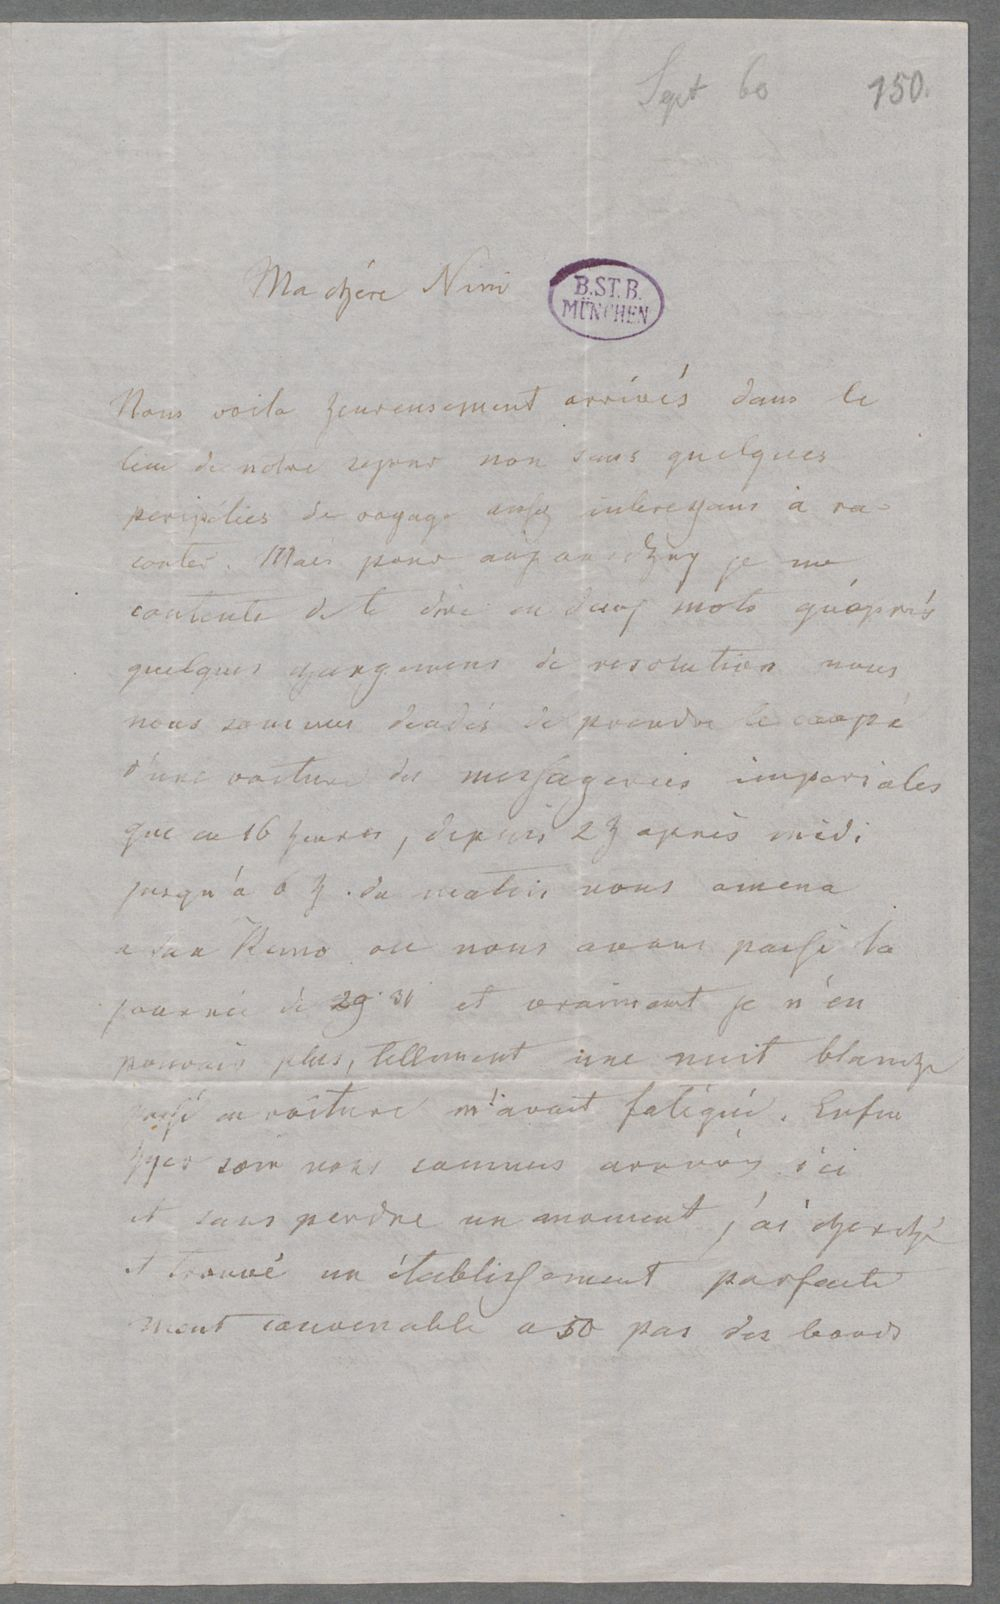 Sept 60 150.
Ma chére Nini
B.ST.B.
MÜNCHEN
Nous voila heureusement arrivés dans le
lieu de notre sejour non sans quelques
peripéties de voyage assez interessans à ra-
conter. Mais pour aujourdhuy je me
contente de te dire en deux mots qu'après
quelques changemens de resolution nous
nous sommes decidés de prendre le coupé
d'une voiture des messageries imperiales
que en 16 heures, depuis 2 h après midi
jusqu'à 6 h. du matin nous amena
a San Remo ou nous avons passé la
journée de 29 et vraiment je n'en
pouvais plus, tellement une nuit blanche
passé en voiture m'avait fatigué. Enfin
hyer soir nous sommes arrivés ici
et sans perdre un moment j'ai cherché
et trouvé un établissement parfaite
ment convenable a 50 pas des bords